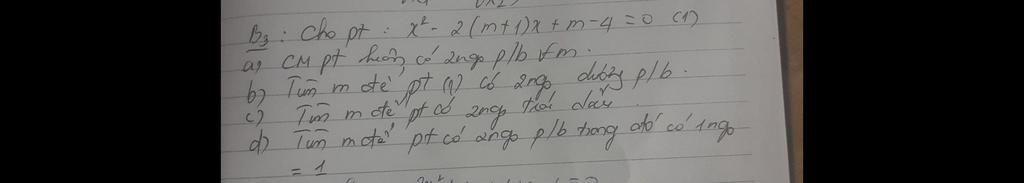 B3: Cho pt: x² - 2(m+1)x + m-4 = 0 (1)
a) CM pt luôn có 2ngo p/b ∀m.
b) Tìm m để pt (1) có 2ngo dương p/b.
c) Tìm m để pt có 2ngo trái dấu
d) Tìm m để pt có 2ngo p/b trong đó có 1ngo
= 1